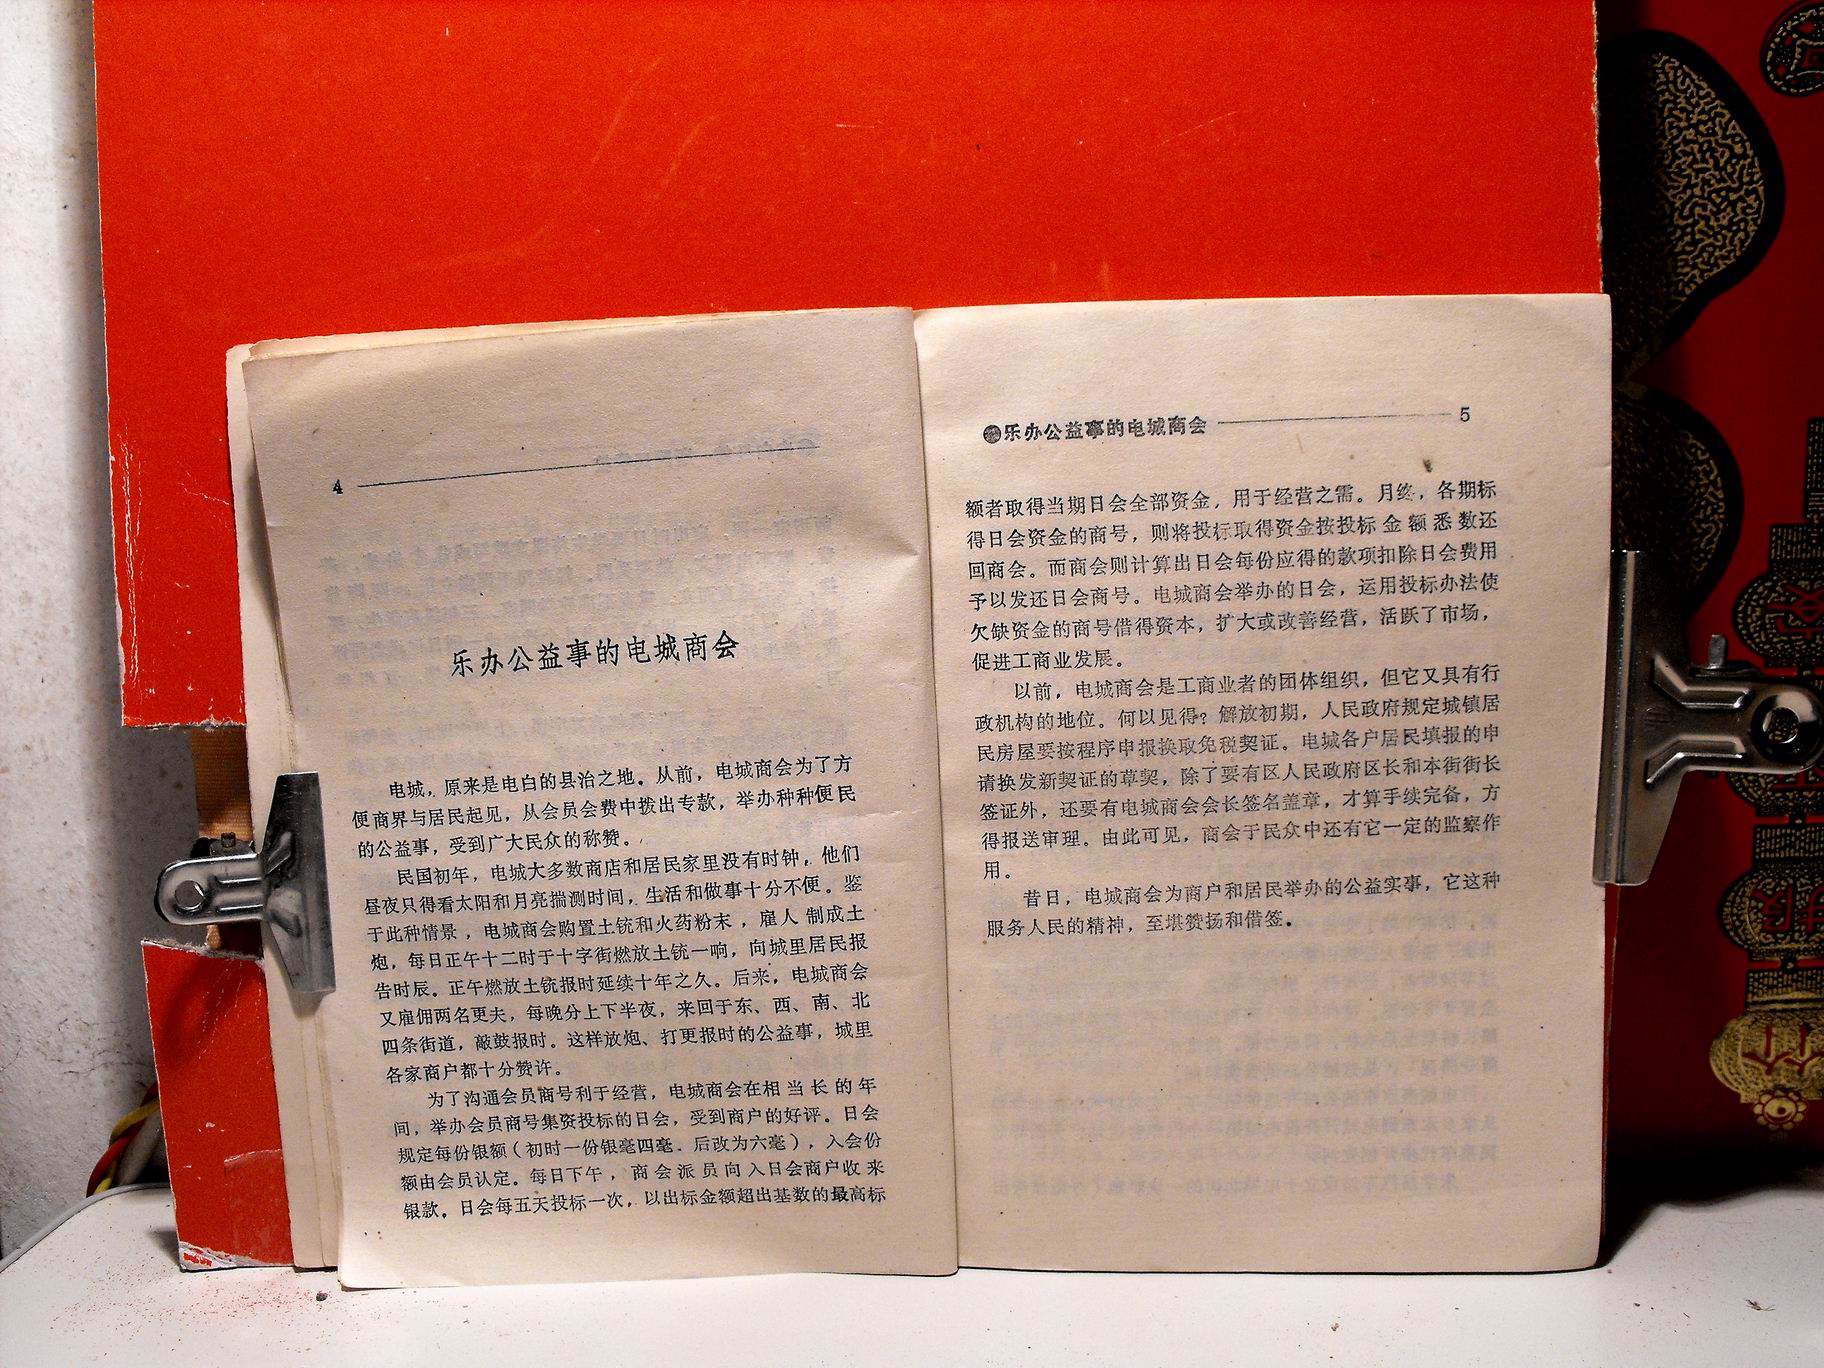 4
乐办公益事的电城商会
电城，原来是电白的县治之地。从前，电城商会为了方
便商界与居民起见，从会员会费中拨出专款，举办种种便民
的公益事，受到广大民众的称赞。
民国初年，电城大多数商店和居民家里没有时钟，他们
昼夜只得看太阳和月亮揣测时间，生活和做事十分不便。鉴
于此种情景，电城商会购置土铳和火药粉末，雇人制成土
炮，每日正午十二时于十字街燃放土铳一响，向城里居民报
告时辰。正午燃放土铳报时延续十年之久。后来，电城商会
又雇佣两名更夫，每晚分上下半夜，来回于东、西、南、北
四条街道，敲鼓报时。这样放炮、打更报时的公益事，城里
各家商户都十分赞许。
为了沟通会员商号利于经营，电城商会在相当长的年
间，举办会员商号集资投标的日会，受到商户的好评。日会
规定每份银额（初时一份银毫四毫．后改为六毫），入会份
额由会员认定。每日下午，商会派员向入日会商户收来
银款。日会每五天投标一次，以出标金额超出基数的最高标
●乐办公益事的电城商会 5
额者取得当期日会全部资金，用于经营之需。月终，各期标
得日会资金的商号，则将投标取得资金按投标金额悉数还
回商会。而商会则计算出日会每份应得的款项扣除日会费用
予以发还日会商号。电城商会举办的日会，运用投标办法使
欠缺资金的商号借得资本，扩大或改善经营，活跃了市场，
促进工商业发展。
以前，电城商会是工商业者的团体组织，但它又具有行
政机构的地位。何以见得？解放初期，人民政府规定城镇居
民房屋要按程序申报换取免税契证。电城各户居民填报的申
请换发新契证的草契，除了要有区人民政府区长和本街街长
签证外，还要有电城商会会长签名盖章，才算手续完备，方
得报送审理。由此可见，商会于民众中还有它一定的监察作
用。
昔日，电城商会为商户和居民举办的公益实事，它这种
服务人民的精神，至堪赞扬和借签。